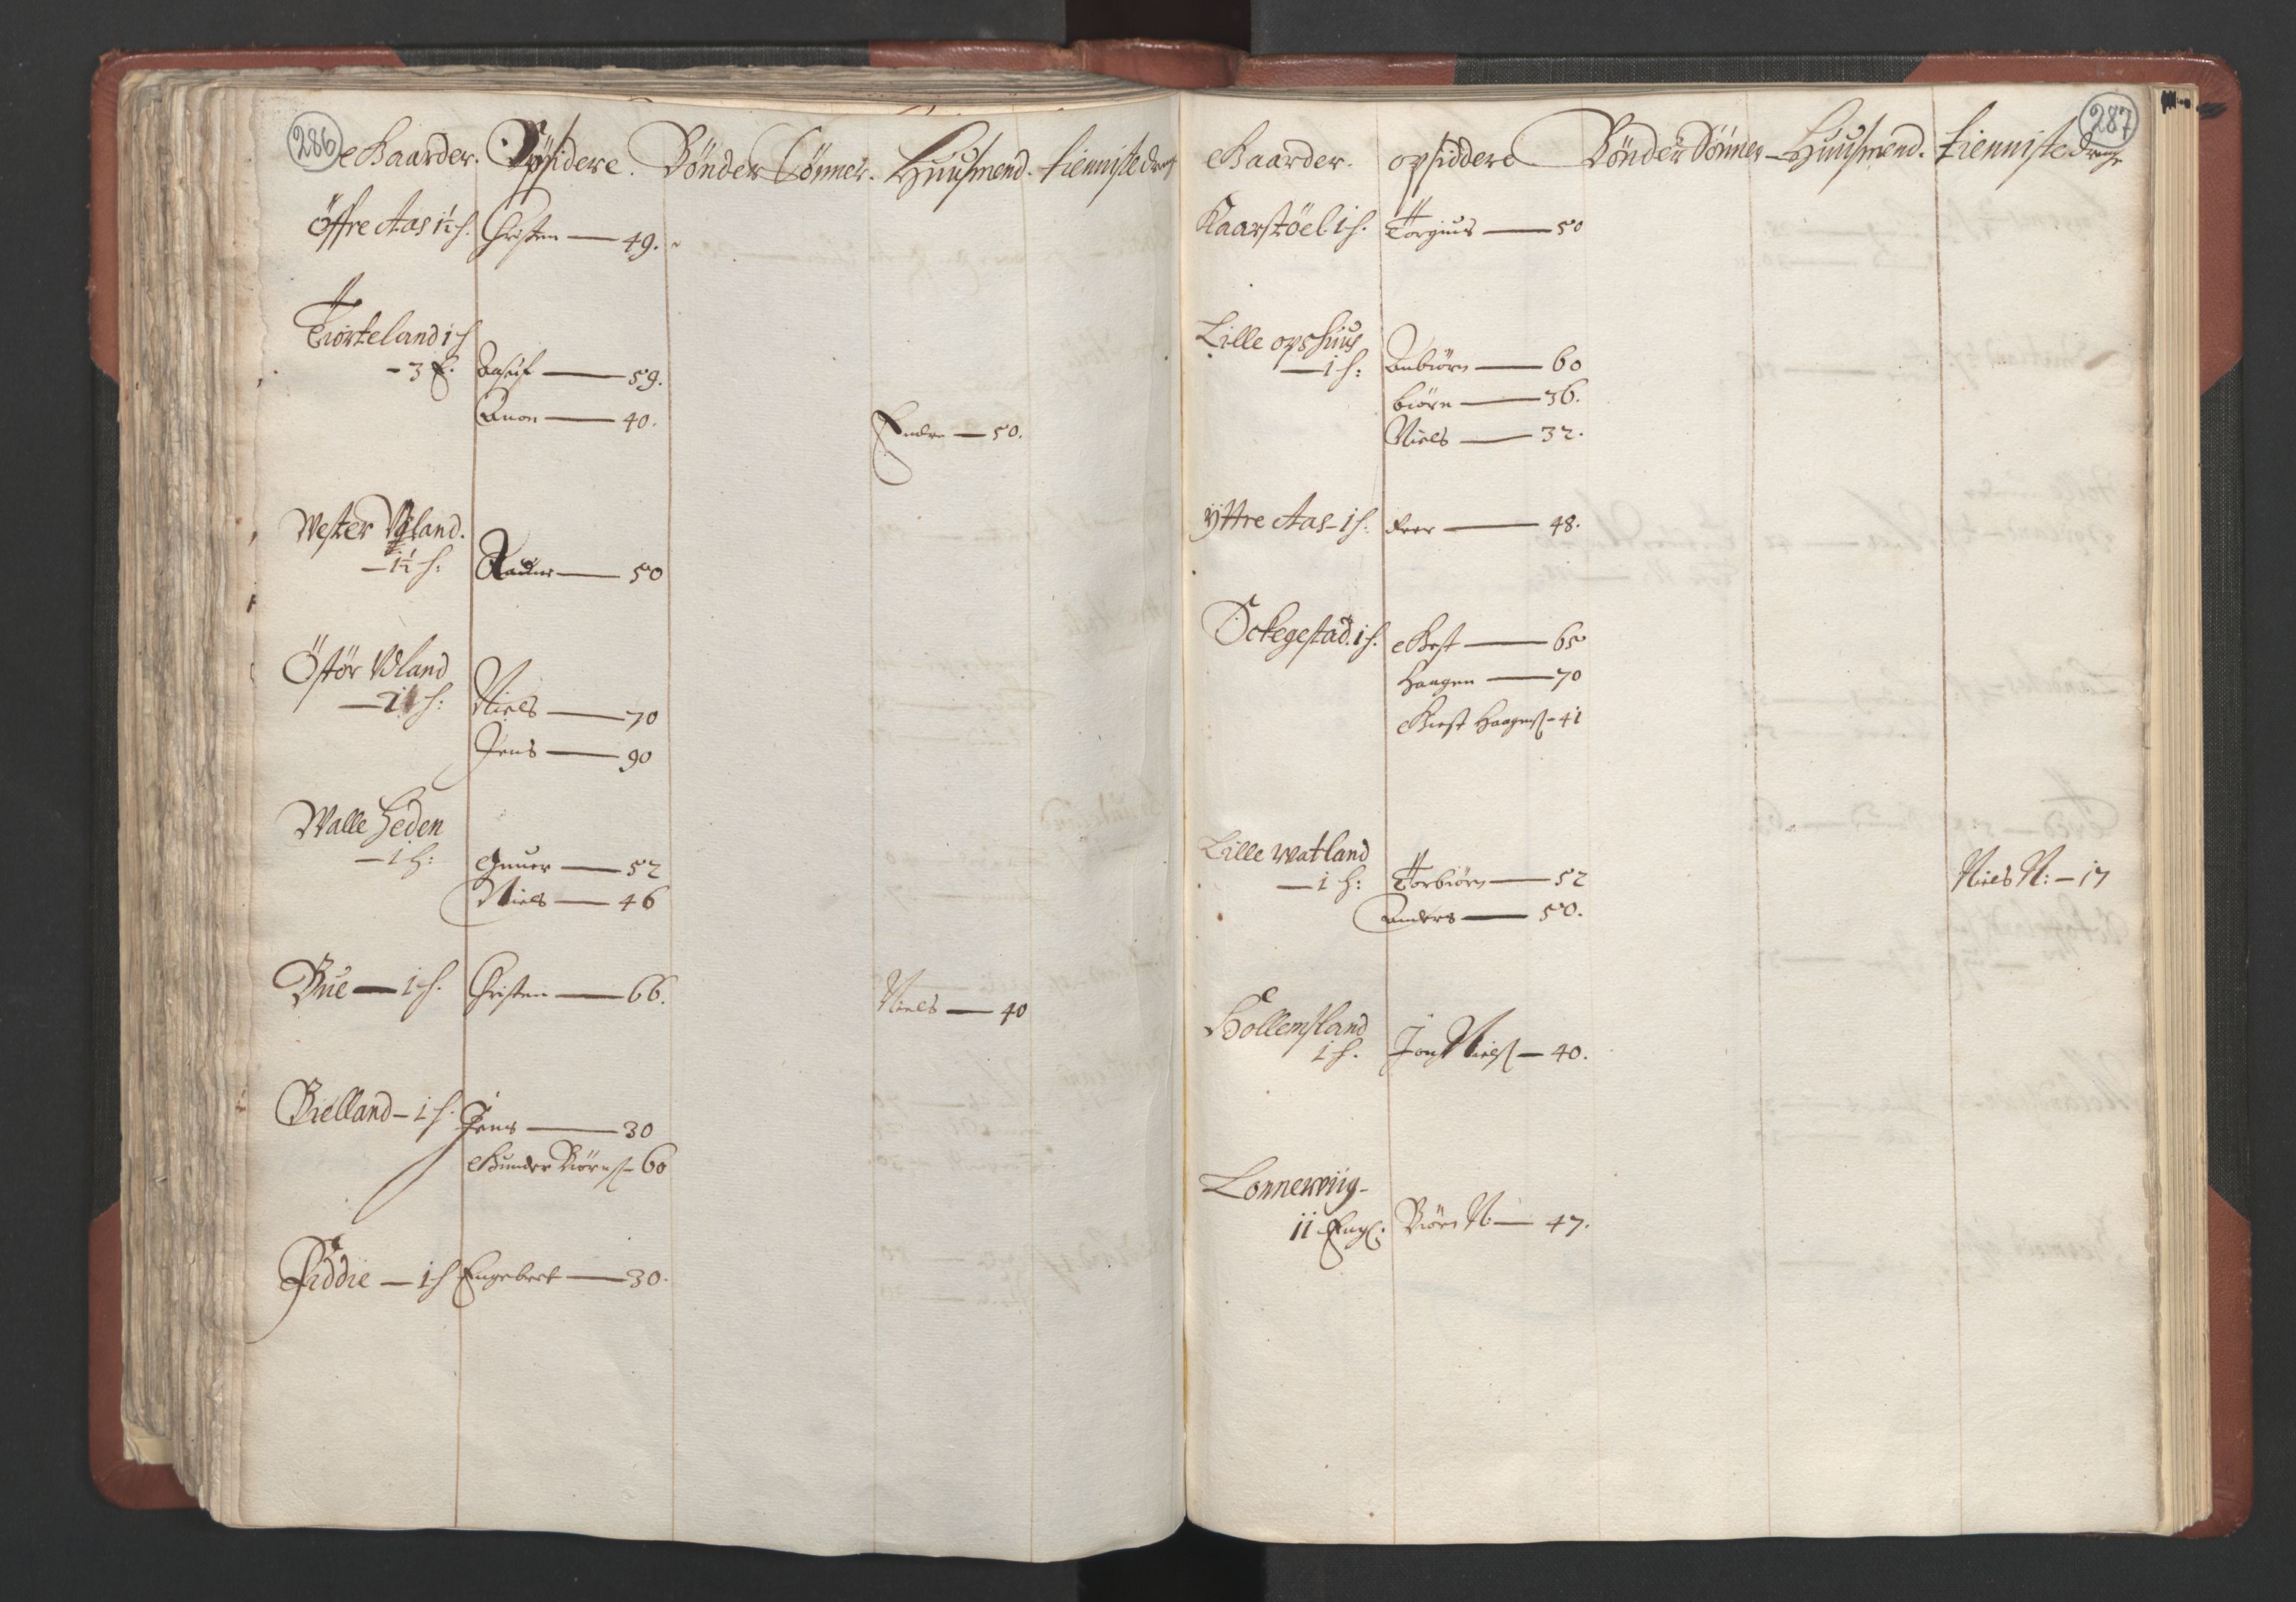 286
Gaarder. Opsidere. Bönder Sönner. Huusmend. tienniste dreng
Öffre Aas 1½ h. Christen — 49.
Tiorteland 1 h
- 3 E. — 59.
40. Endre — 50.
Wester Vland.
— 1½ h: — 50
Östör Vland
h: Niels — 70
Jens — 90
Walle Heden
— 1 h: Gunner — 52
Niels — 46
Bue — 1 h. Christen — 66. Niels — 40
Bielland — 1 h. Jens — 30
Gunder Biörnß — 60
Fiddie — 1 h Engebret — 30.
287
Gaarder. opsiddere Bönder Sönner Huusmend. tienniste drenge
Kaarstöel 1 h. Torgius — 50
Lille opshuus
— 1 h: Anbiörn — 60
biörn — 36.
Niels — 32.
Yttre Aas - 1 h. Peer — 48.
Ockegestad. 1 h. Giest — 65
Haagen — 70
Giest Haagenß - 41
Lille watland
— 1 h: Torbiörn — 52 Niels N: — 17
Anders — 50.
Hollemsland
1 h. Jon Nielß — 40.
Lonnewiig -
11 Engl: Biörn N: — 47.